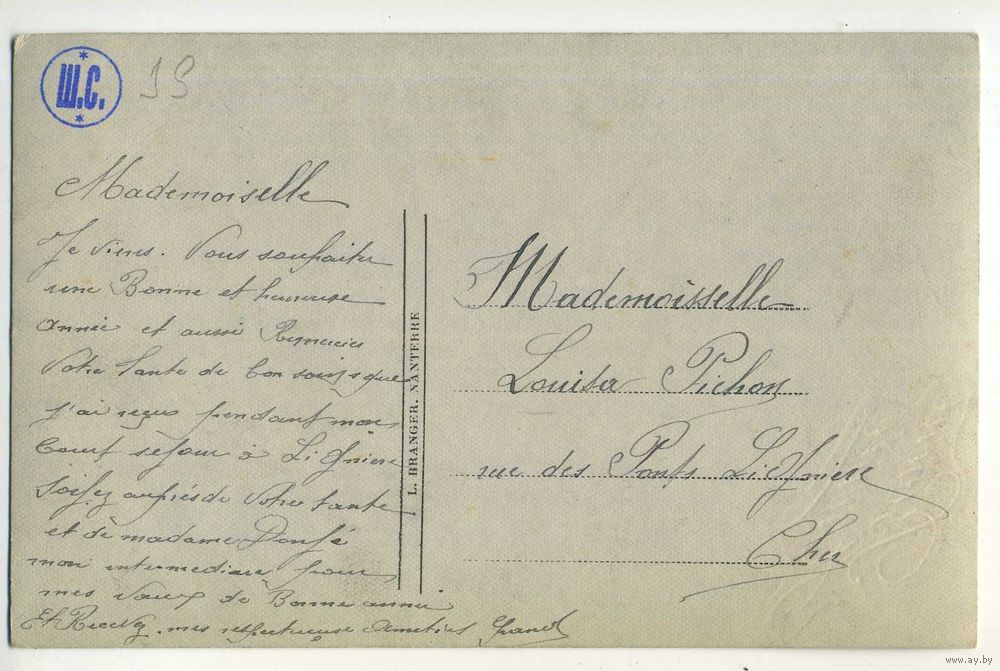 Ш.С.
19
Mademoiselle
Je viens. Vous souhaiter
une Bonne et heureuse
année et aussi Remercier
Votre tante de bon soins que
j'ai reçus pendant mon
Court sejour à Lignière
Soiyez auprés de Votre tante
et de madame
mon intermediare pour
mes vœux de Bonne année
Et Recevez. mes respectueuse Amitiés
L. BRANGER, NANTERRE
Mademoisselle
Louisa Pichon
rue des Ponts Lignière
Cher
www.ay.by